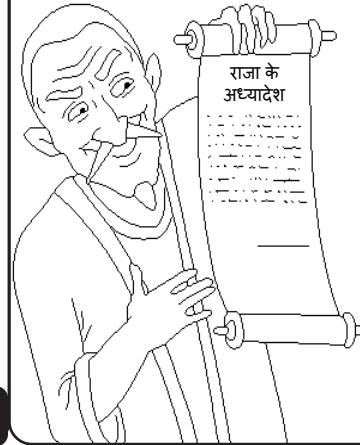 राजा के
अध्यादेश